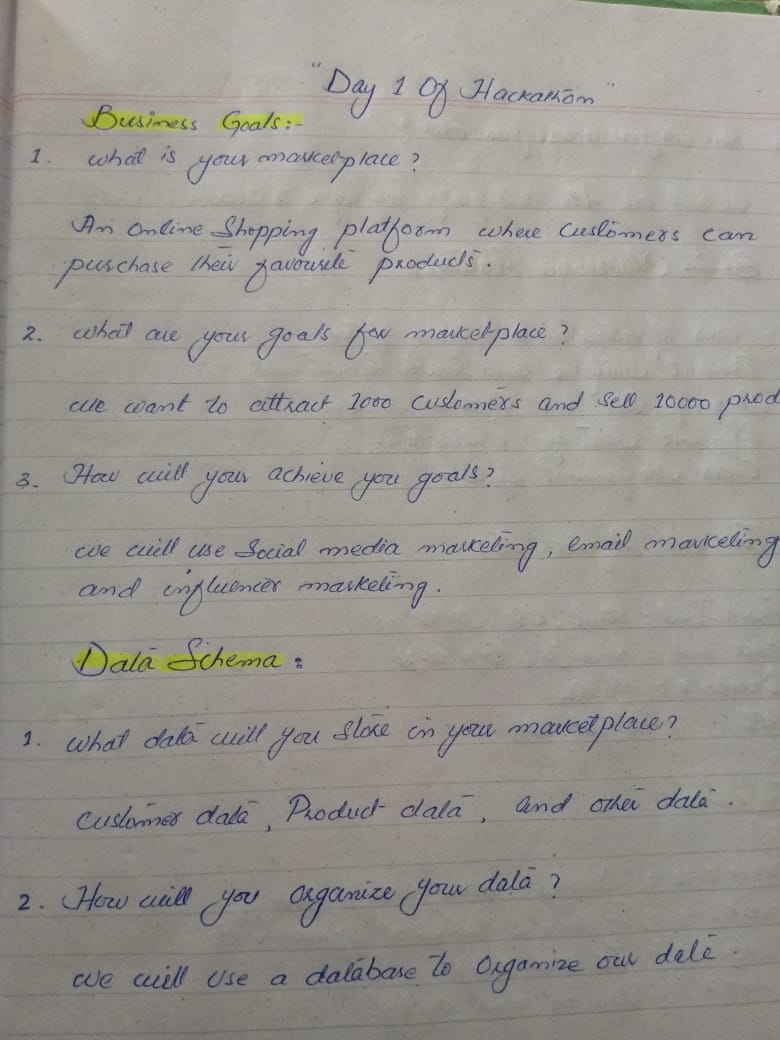 "Day 1 Of Hackathon"
Business Goals:-
1. what is your marketplace?
An Online Shopping platform where Customers can
purchase their favourite products.
2. what are your goals for marketplace?
we want to attract 1000 customers and Sell 10000 prod
3. How will your achieve you goals?
we will use Social media marketing, email marketing
and influencer marketing.
Data Schema :
1. what data will you Store in your marketplace?
customer data, Product data, and other data.
2. How will you organize your data?
we will use a database to Organize our data.